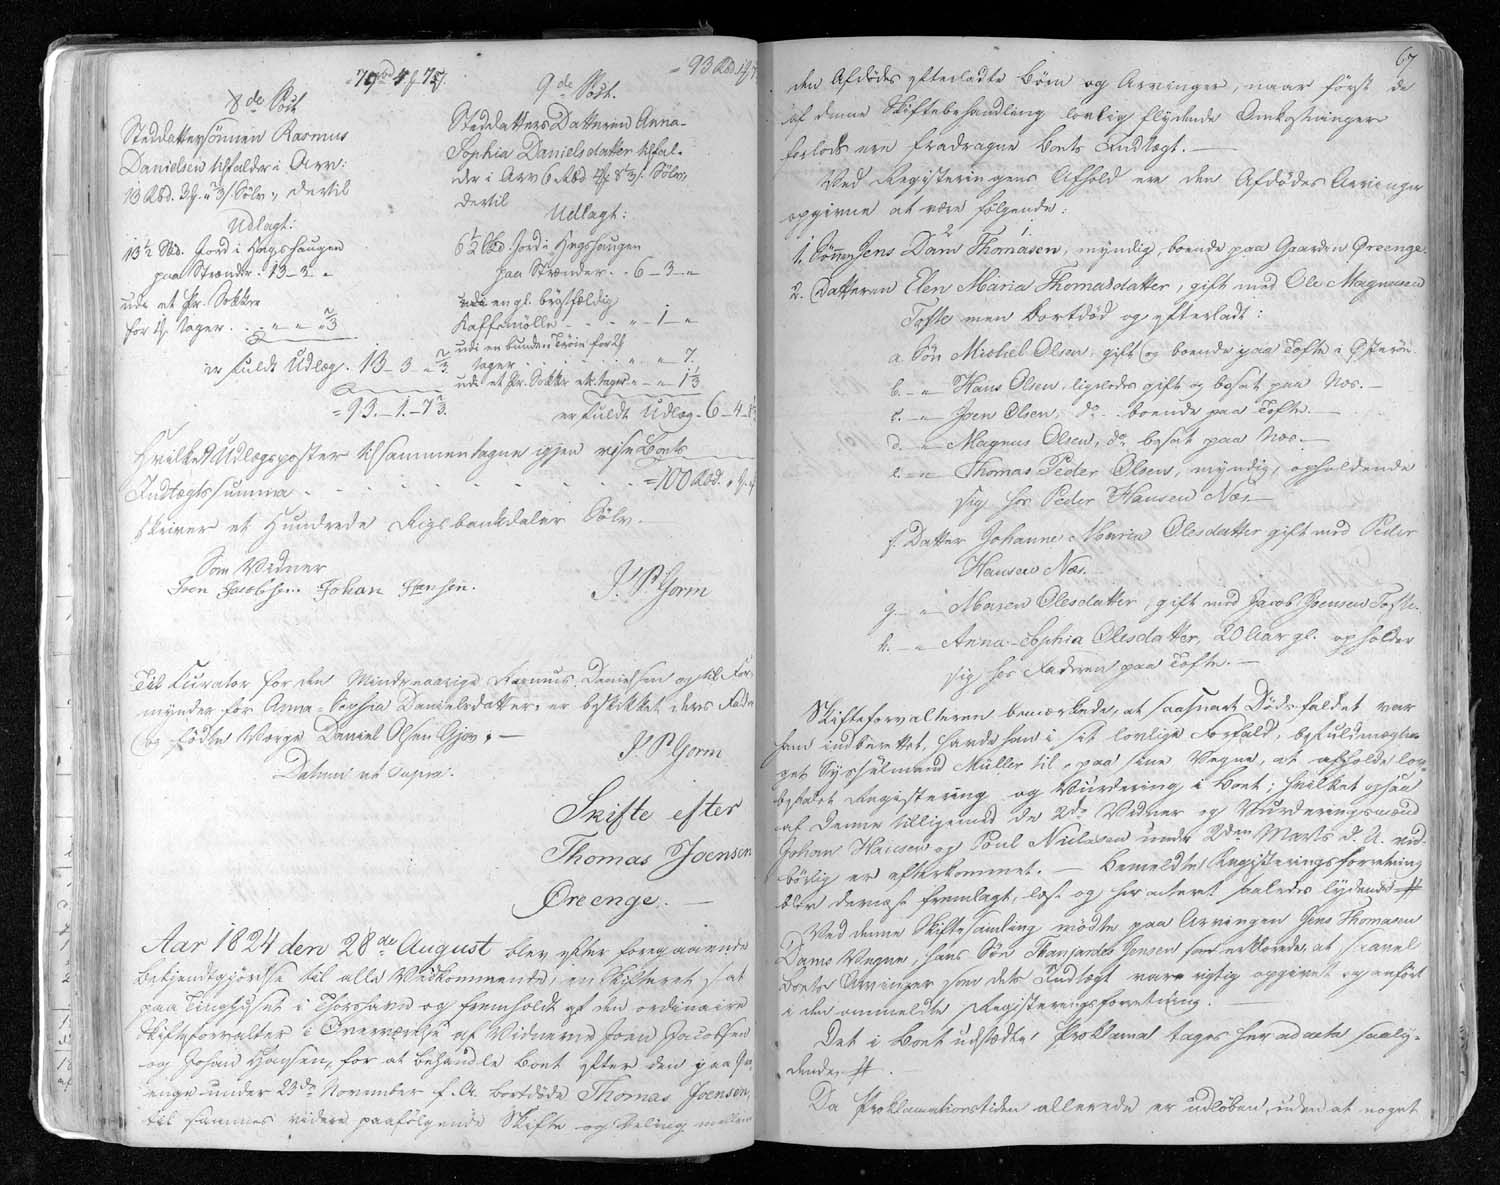 = 79 rbd 4 ƒ 7 5/
8de Post
Steddattersönnen Rasmus
Danielsen tilfalder i Arv:
13 Rbd. 3 ƒ. " 2/3 ß Sölv, dertil
Udlagt:
13½ Rbd. Jord i Hugshaugen
paa Strænder. 13 – 3 "
udi et Pr. Sokker
for 4 ƒ tager . . . " " " 2/3
er fuldt Udlæg. 13 – 3 " 2/3.
= 93. – 1. – 7 2/3.
= 93 Rbd 1 ƒ 7
9de Post.
Steddatters Datteren Anna-
Sophia Danielsdatter tilfal-
der i Arv 6 Rbd 4 ƒ 8 1/3 ß. Sölv,
dertil
Udlagt:
6½ Rbd. Jord i Hugshaugen
paa Strænder . . 6 – 3 – "
udi en gl. brøstfældig
Kaffemölle . . . . " – 1 – "
udi en bunden Tröie forts
tager . . . . . " – " – 7.
udi et Pr. Sokker etc. tager " – " – 1 1/3
er fuldt Udlæg – 6 – 4 – 8 1/3
Hvilke Udlægsposter tilsammentagne igjen vise Boets
Indtægtssumma . . . . . . . = 100 Rbd. " ƒ. "
skriver et Hundrede Rigsbankdaler Sölv. –
Som Vidner
Joen Jacobsen. Johan Hansen.
J. P. Gorm
Til Kurator for den Mindreaarige Rasmus Danielsen og til For-
mynder for Anna-Sophia Danielsdatter, er beskikket ders Fader
og födte Værge Daniel Olsen Gjov; –
J. P. Gorm
Datum ut supra.
Skifte efter
Thomas Joensen
Öreenge. –
Aar 1824 den 28de August blev efter foregaaende
bekjendtgjörelse til alle Vedkommende, en Skifteret sat
paa Tinghuset i Thorshavn og fremholdt af den ordinaire
Skifteforvalter i Overværelse af Vidnerne Joen Jacobsen
og Johan Hansen, for at behandle Boet efter den paa Ör-
enge under 23de November f. A. bortdöde Thomas Joensen,
til sammes videre paafölgende Skifte og Deling mellem
67
den Afdödes efterladte Börn og Arvinger, naar först de
af denne Skiftebehandling lovlig flydende Omkostninger
forlods ere fradragne Boets Indtægt. –
Ved Registeringens Afhold ere den Afdödes Arvinger
opgivne at være fölgende:
1. Sönnen Jens Dam Thomasen, myndig, boende paa Gaarden Öreenge.
2. Datteren Elen Maria Thomasdatter, gift med Ole Magnusen
Tofte men bortdöd og efterladt:
a. Sön Michel Olsen, gift og boende paa Tofte i Österön.
b. – " – Hans Olsen, ligeledes gift og bosat paa Næs. –
c. – " – Joen Olsen, do. . boende paa Tofte. –
d. – " – Magnus Olsen, do. bosat paa Næs. –
e. – " – Thomas Peder Olsen, myndig, opholdende
sig hos Peder Hansen Næs. –
f. Datter Johanne Maria Olesdatter gift med Peder
Hansen Næs. –
g. – " – Maren Olesdatter, gift med Jacob Joensen Tofte.
h. – " – Anna-Sophia Olesdatter, 20 Aar gl. opholder
sig hos Faderen paa Tofte. –
Skifteforvalteren bemærkede, at saasnart Dödsfaldet var
ham indberettet, havde han i sit lovlige Forfald, befuldmægti-
get Sysselmand Müller til, paa sine Vegne, at afholde lov-
befalet Registering og Vurdering i Boet; hvilket ogsaa
af denne tilligemed de 2de Vidner og Vurderingsmænd
Johan Hansen og Poul Niclasen under 2den Marts d. A. ved-
börlig er efterkommet. – Bemeldte Registeringsforretning
blev dernæst fremlagt, læst og her acteret saaledes lydende #
Ved denne Skiftesamling mödte paa Arvingen Jens Thomasen
Dams Vegne, hans Sön Hanjandes Jensen som erklærede, at saavel
Boets Arvinger som dets Indtægt vare rigtig opgivet og anfört
i den ommeldte Registeringsforretning. –
Det i Boet udstædte Proklama tages her ad acta saaly-
dende, #.
Da Proklamationstiden allerede er udlöben, uden at noget